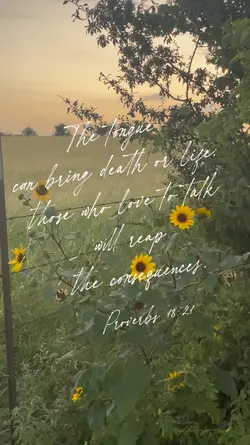 The tongue
can bring death or life;
those who love to talk
will reap
the consequences.
Proverbs 18:21